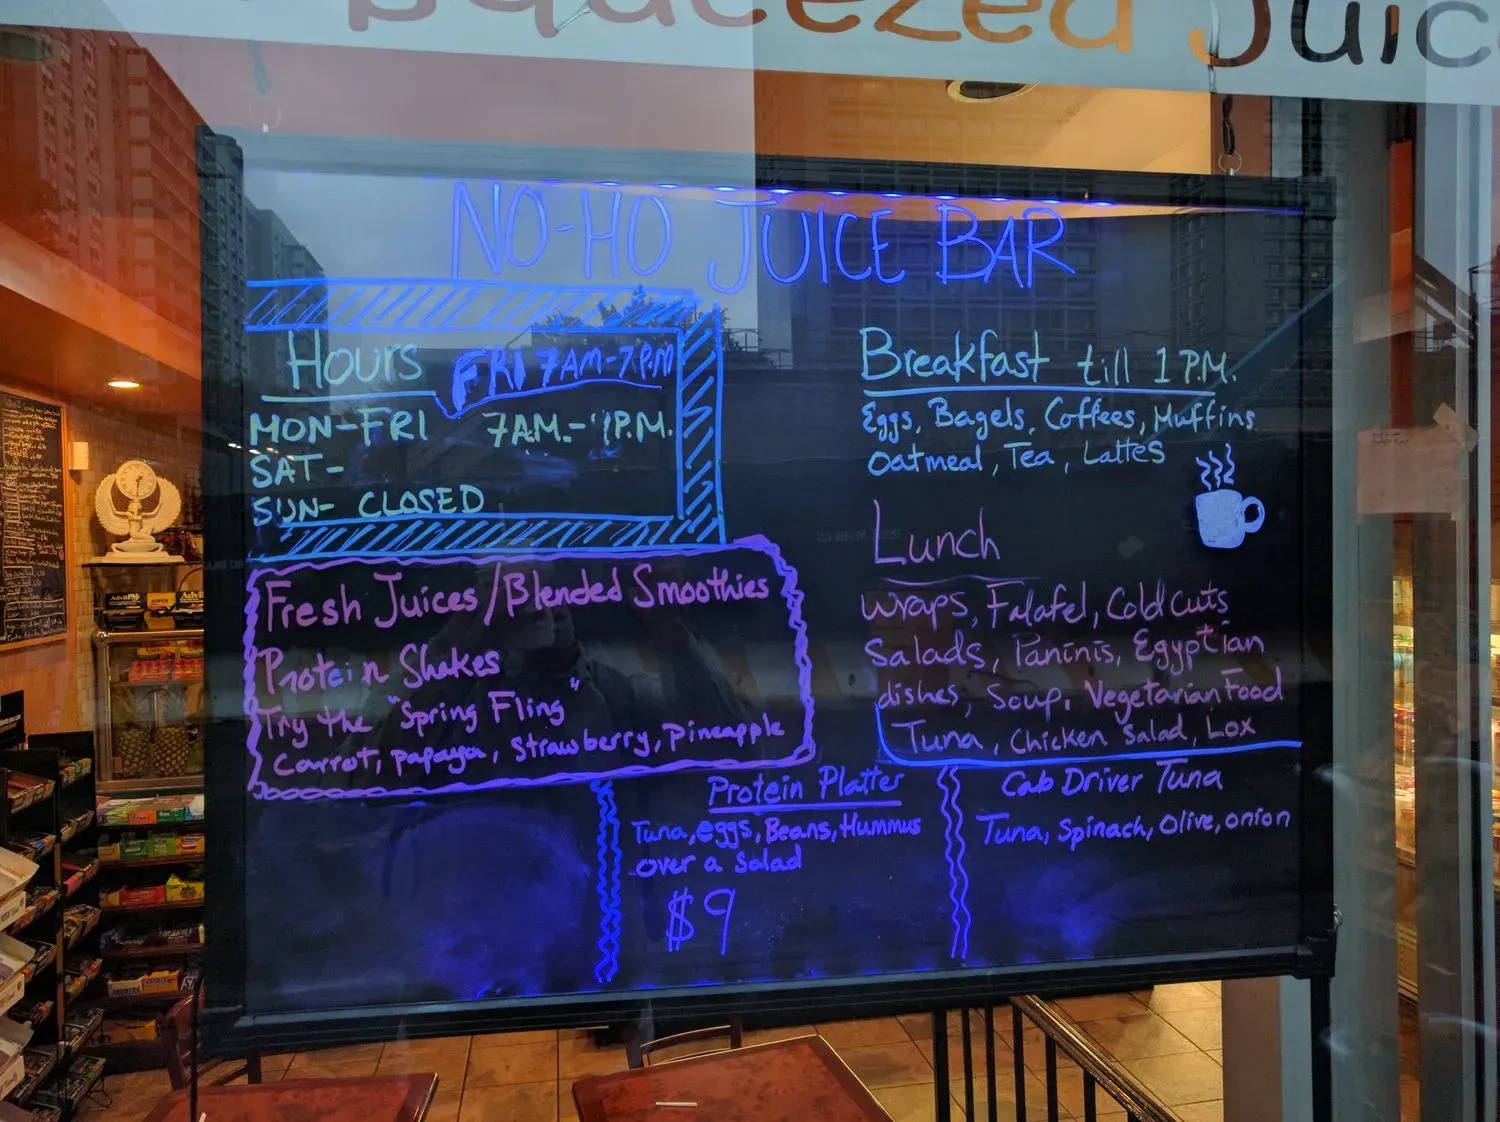 Squeezed Juice
NO-HO JUICE BAR
Hours
FRI 7AM-7P.M
MON-FRI 7AM.- P.M.
SAT-
SUN- CLOSED
Fresh Juices/Blended Smoothies
Protein Shakes
Try the "Spring Fling"
Carrot, papaya, Strawberry, Pineapple
Breakfast till 1 P.M.
Eggs, Bagels, Coffees, Muffins
Oatmeal, Tea, Lattes
Lunch
Wraps, Falafel, Cold cuts
Salads, Paninis, Egyptian
dishes, Soup, Vegetarian Food
Tuna, Chicken Salad, Lox
Protein Platter
Tuna, eggs, Beans, Hummus
over a Salad
$9
Cab Driver Tuna
Tuna, Spinach, Olive, onion
Advil